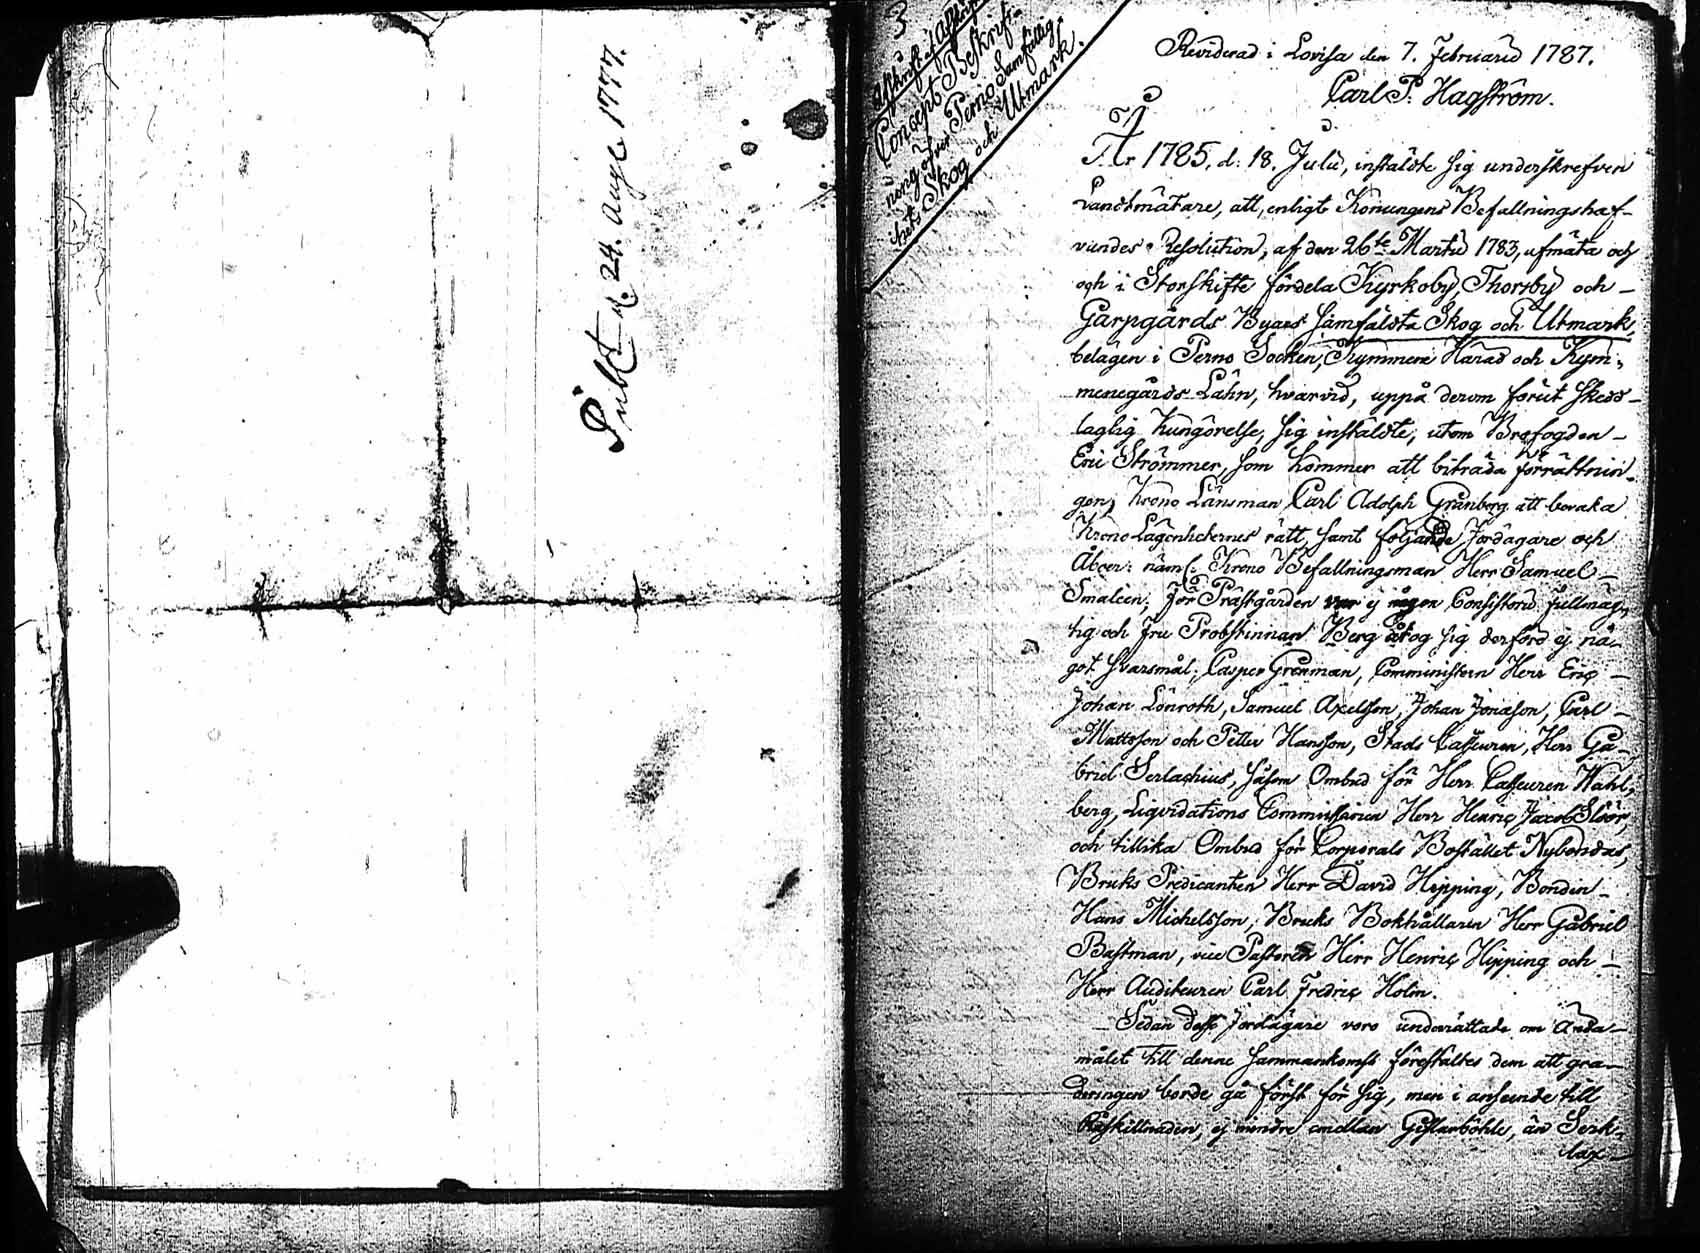 Publ. d. 24. Aug. 1777.
3
Afskrift af Afskrifne
Concept Beskrif-
ning öfver Perno Samfällig-
hets Skog och Utmark.
Reviderad i Lovisa den 7. Februarii 1787.
Carl P. Hagström.
År 1785, d. 18. Julii, instälde sig underskrefven
Landtmätare, att, enligt Konungens Befallningshaf-
vandes Resolution, af den 26te Martii 1783, afmäta och
och i Storskifte fördela Kyrkoby, Thorsby och
Garpgårds Byars samfälta Skog och Utmark,
belägen i Perno Socken, Kymmene Härad och Kym-
menegårds Lähn, hvarvid, uppå derom förut skedd
laglig Kungörelse, sig instälte, utom Brofogden
Eric Strömmer, som kommer att biträda förrättnin-
gen, Krono Länsman Carl Adolph Granberg att bevaka
Krono Lägenheternes rätt, samt följande Jordägare och
Åboer: näml. Krono Befallningsman Herr Samuel
Smaleen; för Prästgården var ej någon Consistorii Fullmäg-
tig och Fru Probstinnan Berg åtog sig derföre ej nå-
got svarsmål; Casper Grönman, Comministern Herr Eric
Johan Lönroth, Samuel Axelsson, Johan Jonasson, Carl
Mattsson och Petter Hansson, Stads Casseuren, Herr Ga-
briel Serlachius, såsom Ombud för Herr Casseuren Wahl-
berg, Liqvidations Commissarien Herr Henric Jacob Slöör,
och tillika Ombud för Corporals Bostället Nybondas,
Bruks Predicanten Herr David Hipping, Bonden
Hans Michelsson, Bruks Bokhållaren Herr Gabriel
Bastman, vice Pastoren Herr Henric Hipping och
Herr Auditeuren Carl Fredric Holm.
Sedan desse Jordägare voro underrättade om Ända-
målet till denne sammankomst förestältes dem att gra-
deringen borde gå först för sig, men i anseende till
Ägoskillnaden, ej mindre emellan Gislarböhle, än Serk-
lax